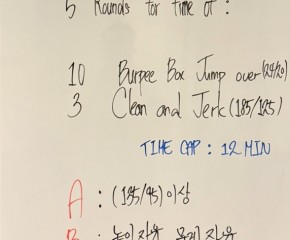 5 Rounds for time of :
10 Burpee Box Jump over (24/20)
3 Clean and Jerk (185/125)
TIME CAP : 12 MIN
A : (135/95) 이상
B : 높이자유 무게자유